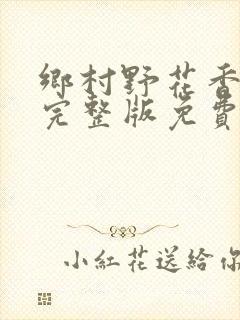 鄉村野花香
完整版免費
小紅花送給你